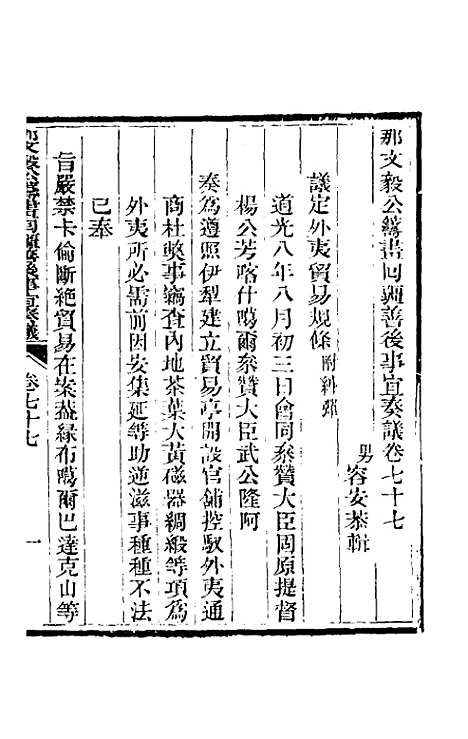 那文毅公籌畫回疆善後事宜奏議卷七十七
男
容安恭輯
議定外夷貿易規條 附糾彈
道光八年八月初三日會同叅贊大臣固原提督
楊公芳喀什噶爾叅贊大臣武公隆阿
奏為遵照伊犁建立貿易亭開設官舖控馭外夷通
商杜獘事竊查内地茶葉大黃磁器綢緞等項爲
外夷所必需前因安集延等助逆滋事種種不法
已奉
旨嚴禁卡倫斷絶貿易在案茲緣布噶爾巴達克山等
那文毅公籌畫回疆善後事宜奏議
卷七十七
一